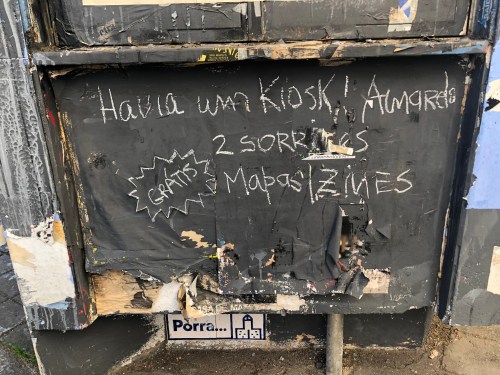 Havia um Kiosk! Amarelo
2 SORRISOS
GRATIS
Mapas|ZINES
Porra...